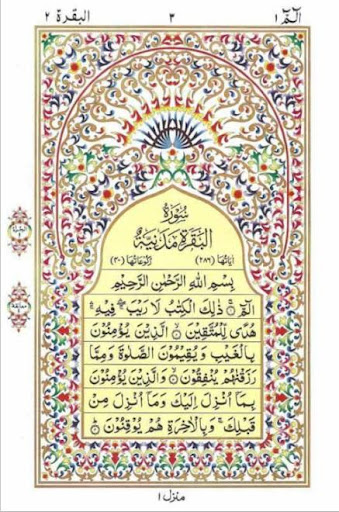 الٓمّٓ ١
٣
البقرة ٢
سُوْرَةُ
الْبَقَرَةِ مَدَنِيَّةٌ
اٰيَاتُهَا (٢٨٦)
رُكُوْعَاتُهَا (٤٠)
بِسْمِ اللّٰهِ الرَّحْمٰنِ الرَّحِيْمِ
الٓمّٓ ۚ ذٰلِكَ الْكِتٰبُ لَا رَيْبَ ۛ فِيْهِ ۛ
هُدًى لِّلْمُتَّقِيْنَ ۙ الَّذِيْنَ يُؤْمِنُوْنَ
بِالْغَيْبِ وَيُقِيْمُوْنَ الصَّلٰوةَ وَمِمَّا
رَزَقْنٰهُمْ يُنْفِقُوْنَ ۙ وَالَّذِيْنَ يُؤْمِنُوْنَ
بِمَآ اُنْزِلَ اِلَيْكَ وَمَآ اُنْزِلَ مِنْ
قَبْلِكَ ۚ وَبِالْاٰخِرَةِ هُمْ يُوْقِنُوْنَ ۗ
منزل ١